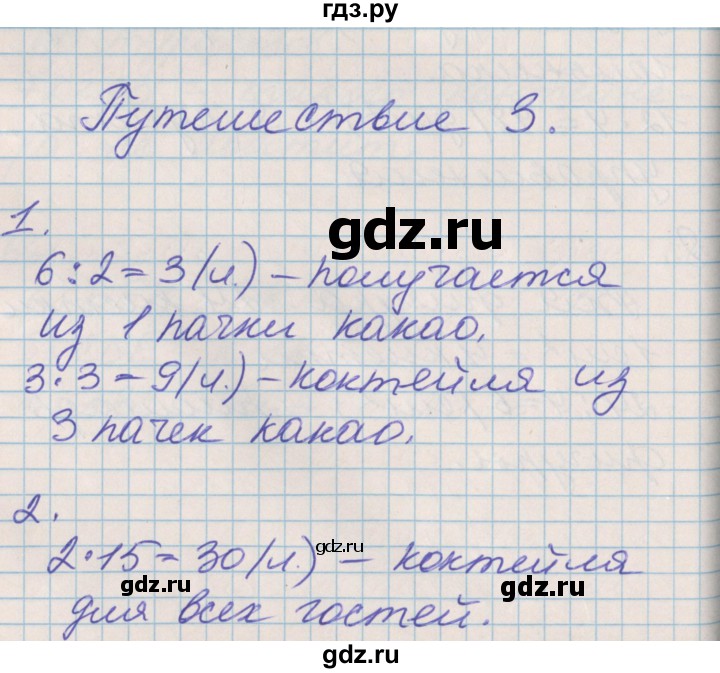 гдз.ру
Путешествие 3.
gdz.ru
1.
6:2=3(л.) – получается
из 1 пачки какао.
3·3=9(л.) – коктейля из
3 пачек какао.
2.
gdz.ru
2·15=30(л.) – коктейля
gdz.ru
gdz.ru
для всех гостей.
gdz.ru